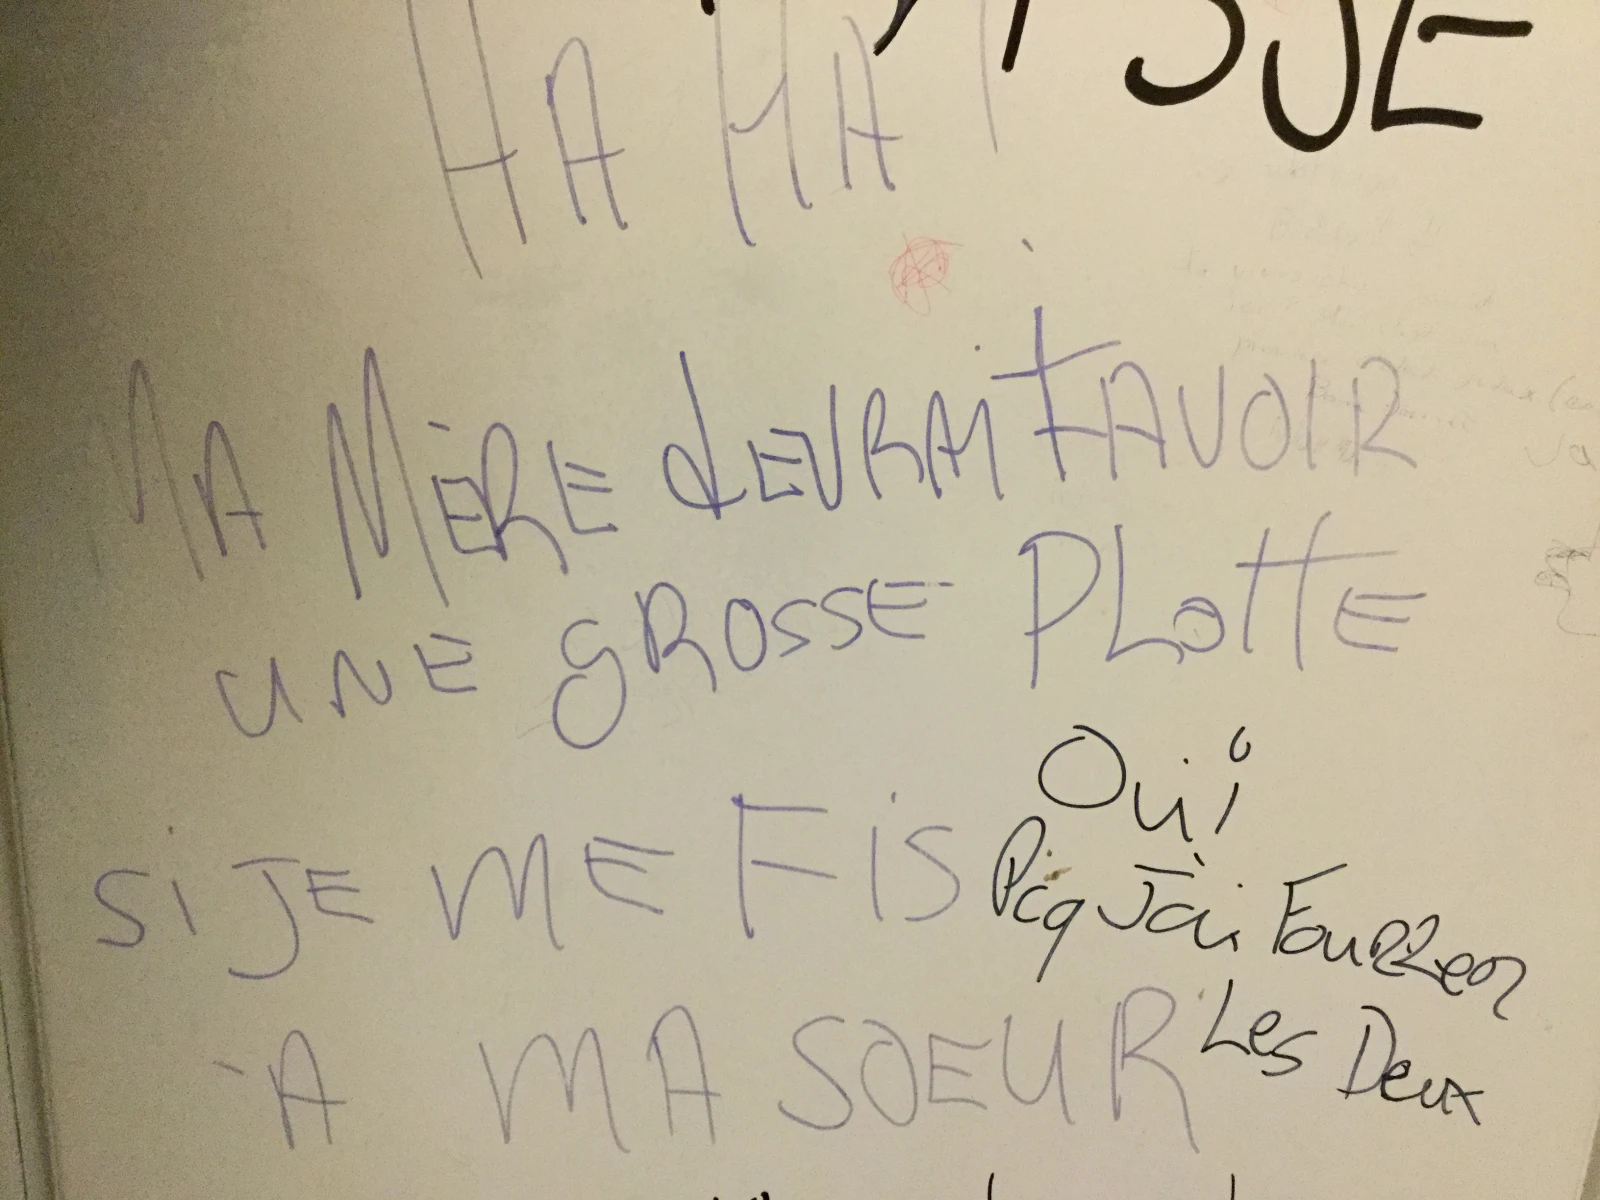 SJE
HA HA
MA MÈRE dEVRAiT AVOIR
UNE GROSSE PLOTTE
Si JE ME FiS
À MA SOEUR
Oui
Pcq J'ai Fourrer
Les Deux